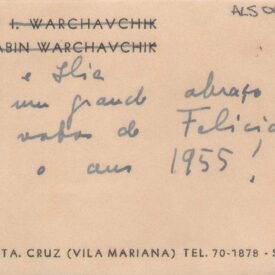 ALS 0
I. WARCHAVCHIK
ABIN WARCHAVCHIK
e Ilia
um grande abraço
votos de Felicid
o ano 1955!
TA. CRUZ (VILA MARIANA) TEL. 70-1878 - S